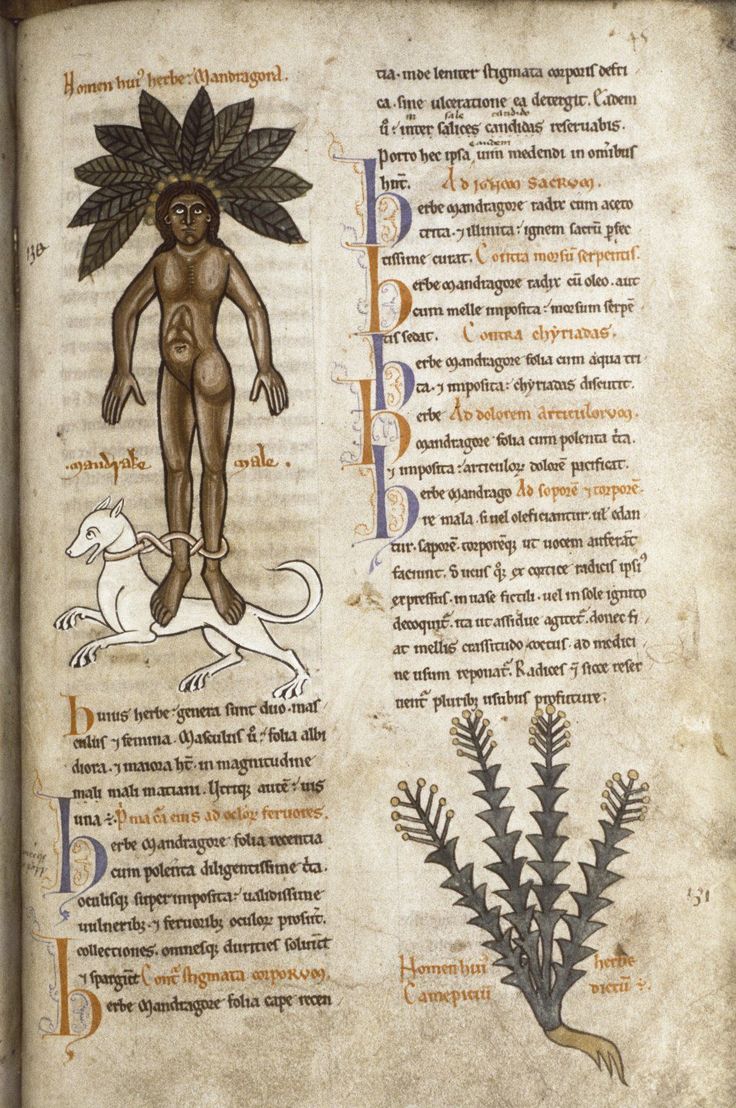 Nomen hui' herbe: Mandragora.
130
mandrake male.
huius herbe: genera sunt duo. mas
culus & femina. Masculus ū: folia albi
diora. & maiora ht̄. in magnitudine
mali maciani. Utriq̨ autē: uis
una ÷. P̄ma cā eius ad oclor̨ feruores.
herbe Mandragore folia recentia
cum polenta diligentissime t̄ta.
oculisq̨ superimposita: ualidissime
uulnerib; & feruorib; oculor̨ prosunt.
collectiones. omnesq̨ durities soluunt
& spargunt Contˢ stigmata corporum.
herbe Mandragore folia cape recen
45
tia. inde leniter stigmata corporis defri
ca. sine ulceratione ea detergit. Eadem
ū: inter salices candidas reseruabis.
in sale candido
Porro hec ipsa, uim medendi in omīb;
eandem
hn̄t. Ad ignem sacrum.
herbe Mandragore radix cum aceto
trita. & illinita: ignem sacrū p̄fec
tissime curat. Contra morsum serpentis.
herbe Mandragore radix cū oleo. aut
cum melle imposita: morsum serpē
tis sedat. Contra chyriadas.
herbe Mandragore folia cum aqua tri
ta. & imposita: chyriadas discutit.
herbe Ad dolorem articulorum.
mandragore folia cum polenta t̄ta.
& imposita: articulor̨ dolorē pacificat.
herbe Mandrago Ad soporē & torporē.
re mala. si uel oleficiantur. ul' edan
tur. saporem. torporemq̨ ut uocem auferāt
faciunt. ex cortice radicis ipsiꝰ
expressus. in uase fictili. uel in sole ignito
decoquit̄. ita ut assidue agitet̄. donec fi
at mellis crassitudo. coctus. ad medici
ne usum reponat̄. Radices & sicce reser
uent̄ plurib; usibus profuture.
131
Nomen hui' herbe
Camepitiū dictū ÷.